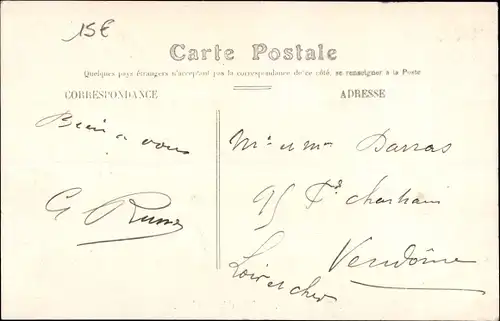 15€
Carte Postale
Quelques pays étrangers n'acceptant pas la correspondance de ce côté, se renseigner à la Poste
CORRESPONDANCE
ADRESSE
Bien a vous
G
Mr et Mme Darras
95 Fg Chartrain
Vendôme
Loir et cher